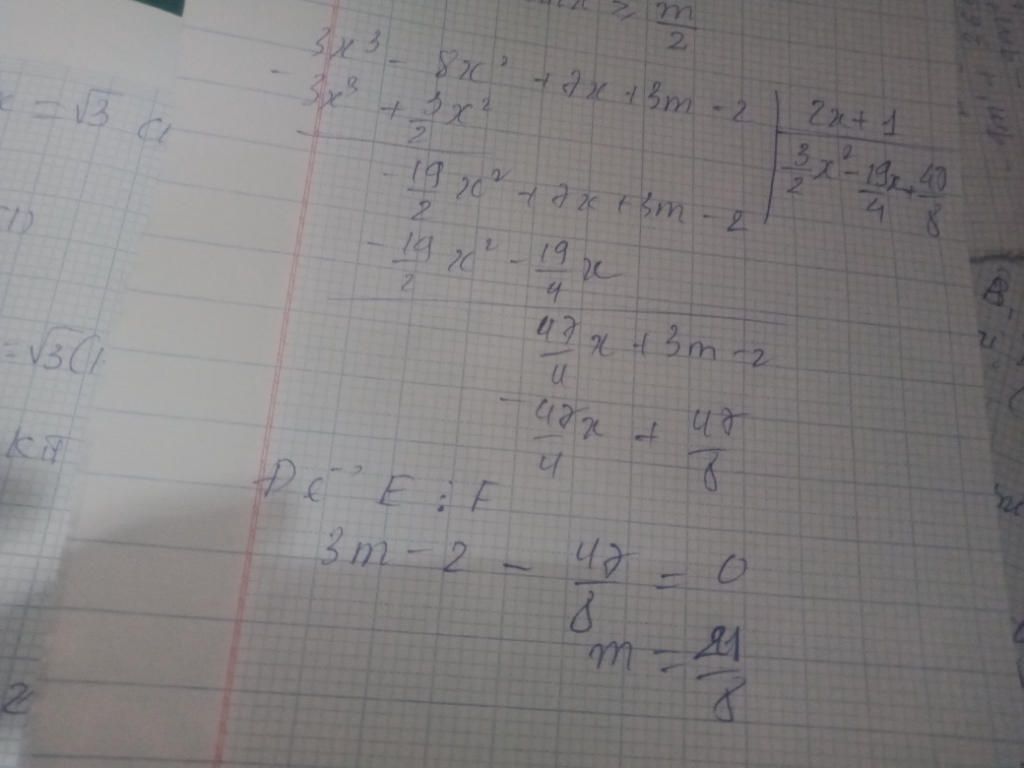 m/2
3x³ - 8x² + 7x + 3m - 2 | 2x + 1
- 3x³ + 3/2 x² | 3/2 x² - 19/4 x + 47/8
- 19/2 x² + 7x + 3m - 2
- 19/2 x² - 19/4 x
47/4 x + 3m - 2
- 47/4 x + 47/8
E : F
3m - 2 - 47/8 = 0
m = 21/8
= √3
= √3 (1